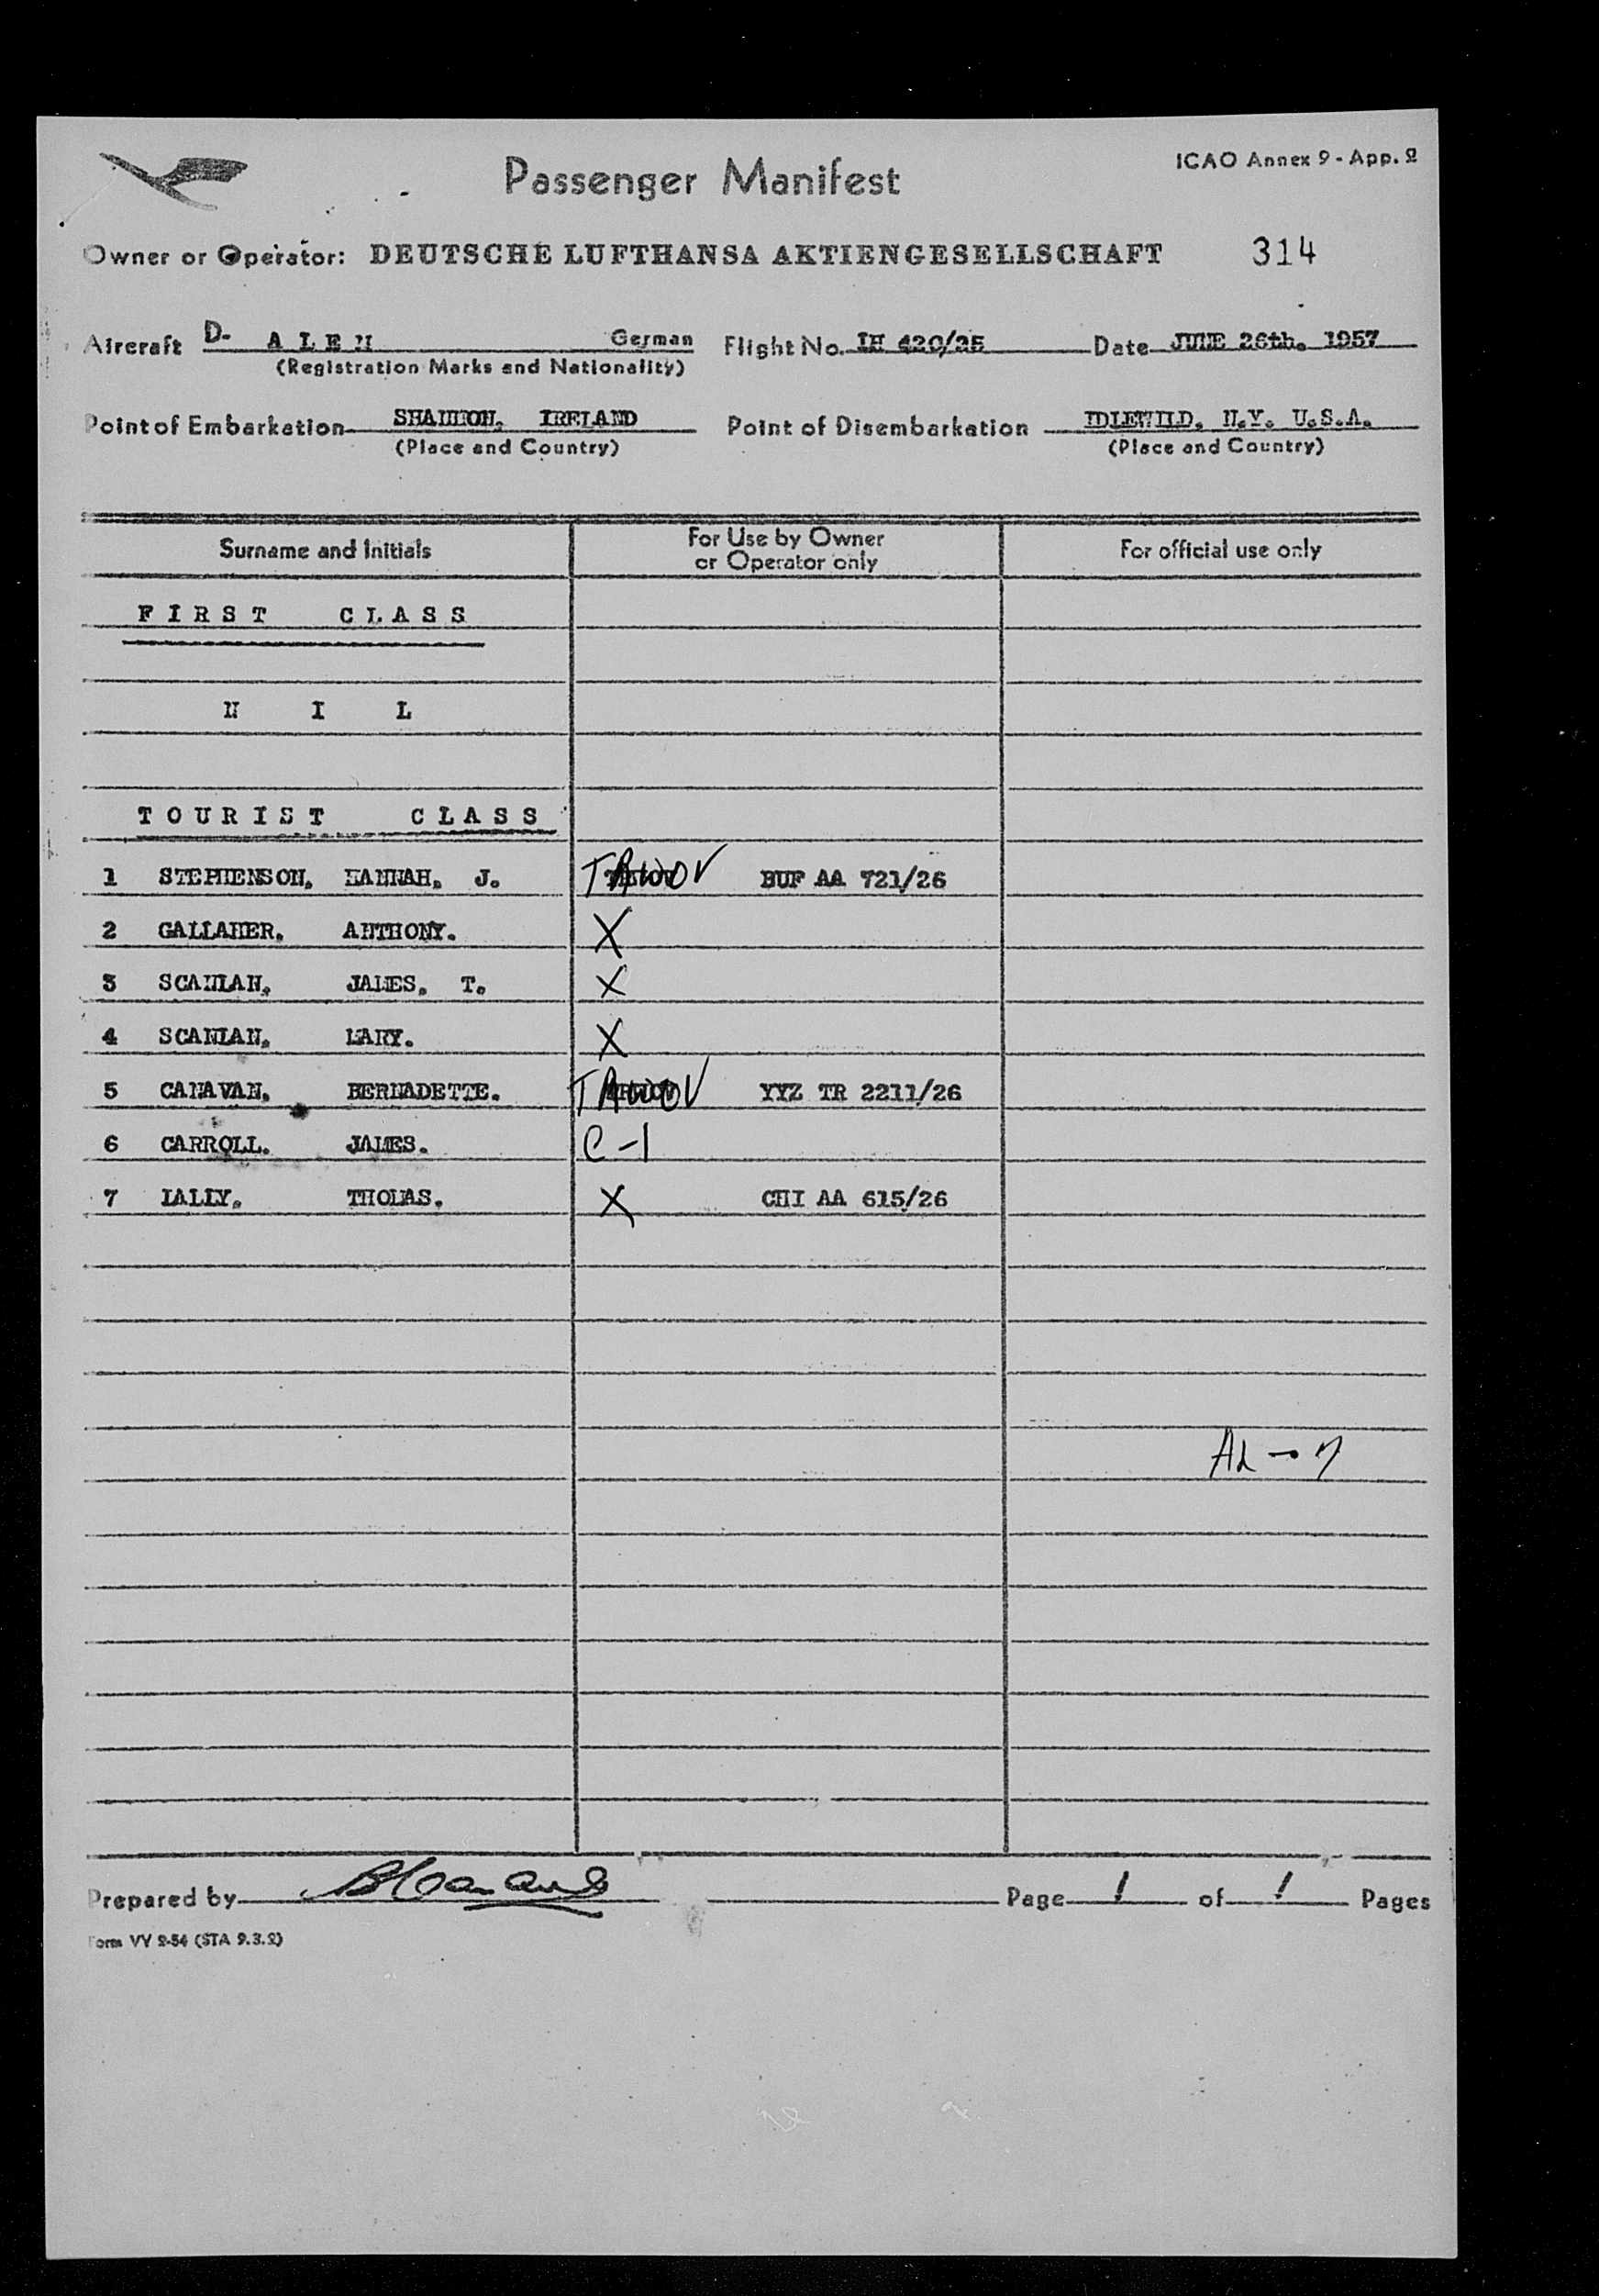 Passenger Manifest
ICAO Annex 9 - App. 2
Owner or Operator: DEUTSCHE LUFTHANSA AKTIENGESELLSCHAFT 314
Aircraft D- A L E M German Flight No. LH 420/25 Date JUNE 26th. 1957
(Registration Marks and Nationality)
Point of Embarkation SHANNON, IRELAND Point of Disembarkation IDLEWILD, N.Y. U.S.A.
(Place and Country) (Place and Country)
Surname and Initials For Use by Owner or Operator only For official use only
F I R S T C L A S S
N I L
T O U R I S T C L A S S
1 STEPHENSON, HANNAH, J. BUF AA 721/26
2 GALLAHER, ANTHONY. X
3 SCANLAN, JAMES, T. X
4 SCANLAN, MARY. X
5 CANAVAN, BERNADETTE. YYZ TR 2211/26
6 CARROLL. JAMES. C-1
7 LALLY, THOMAS. X CHI AA 615/26
Prepared by Page 1 of 1 Pages
Form VY 2-54 (STA 9.3.2)